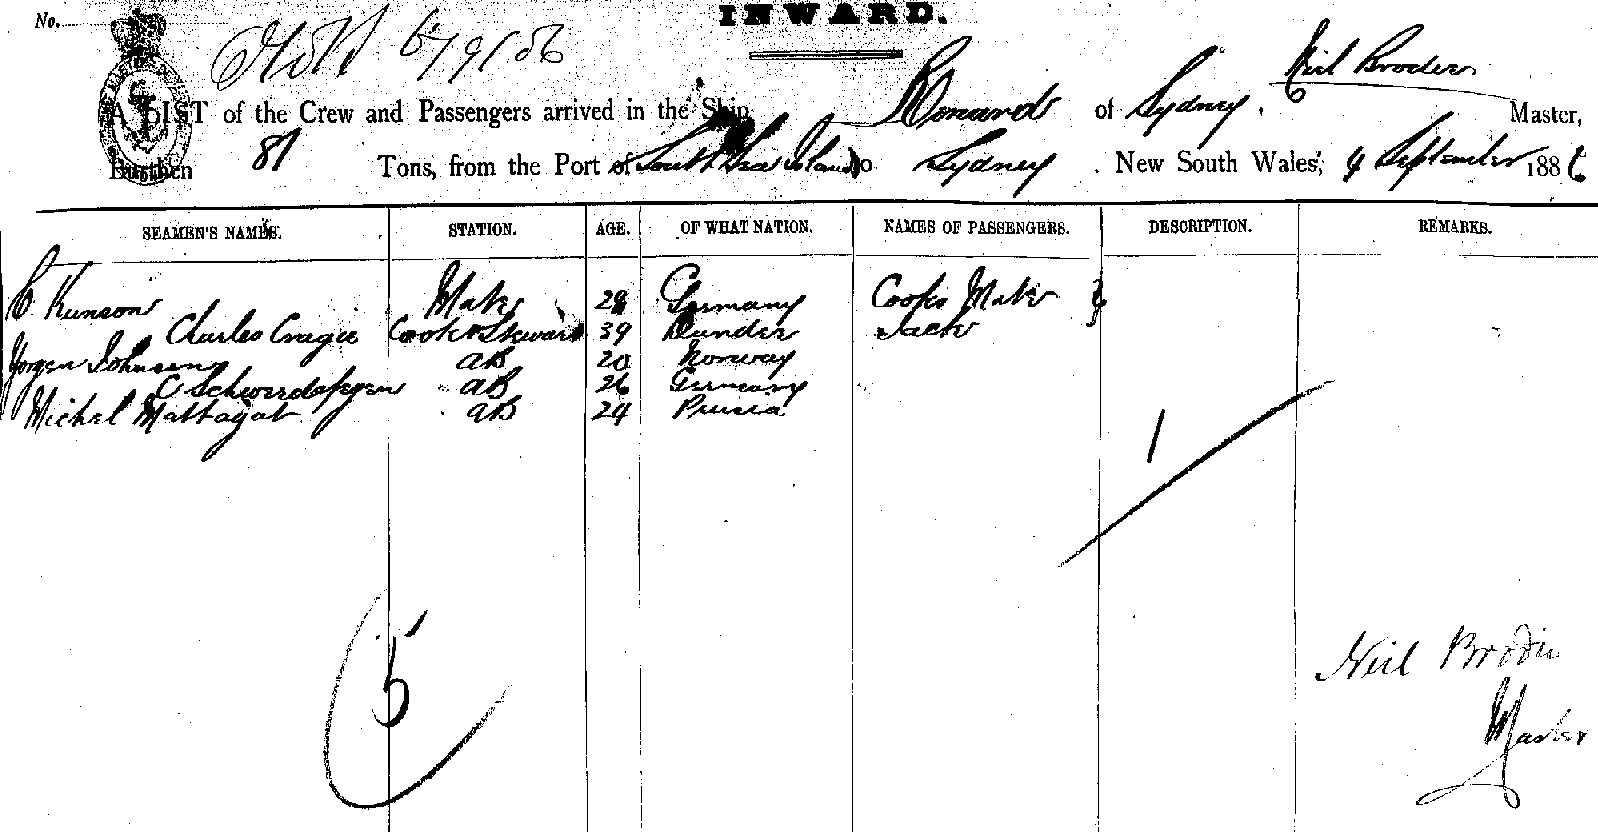 No.
INWARD.
6/9/86
Neil Broder
A LIST of the Crew and Passengers arrived in the Ship of Sydney. Master,
Burthen 81 Tons, from the Port of South Sea Islands to Sydney. New South Wales, 4 September 1886
SEAMEN'S NAMES. STATION. AGE. OF WHAT NATION. NAMES OF PASSENGERS. DESCRIPTION. REMARKS.
C Mate 28 Germany Cooks Mate
Charles Cragie Cook & Steward 39 Dundee Jack
Jorgen Johnsen AB 20 Norway
C AB 26 Germany
Michel AB 24 Prusia
1
5
Neil Brodie
Master